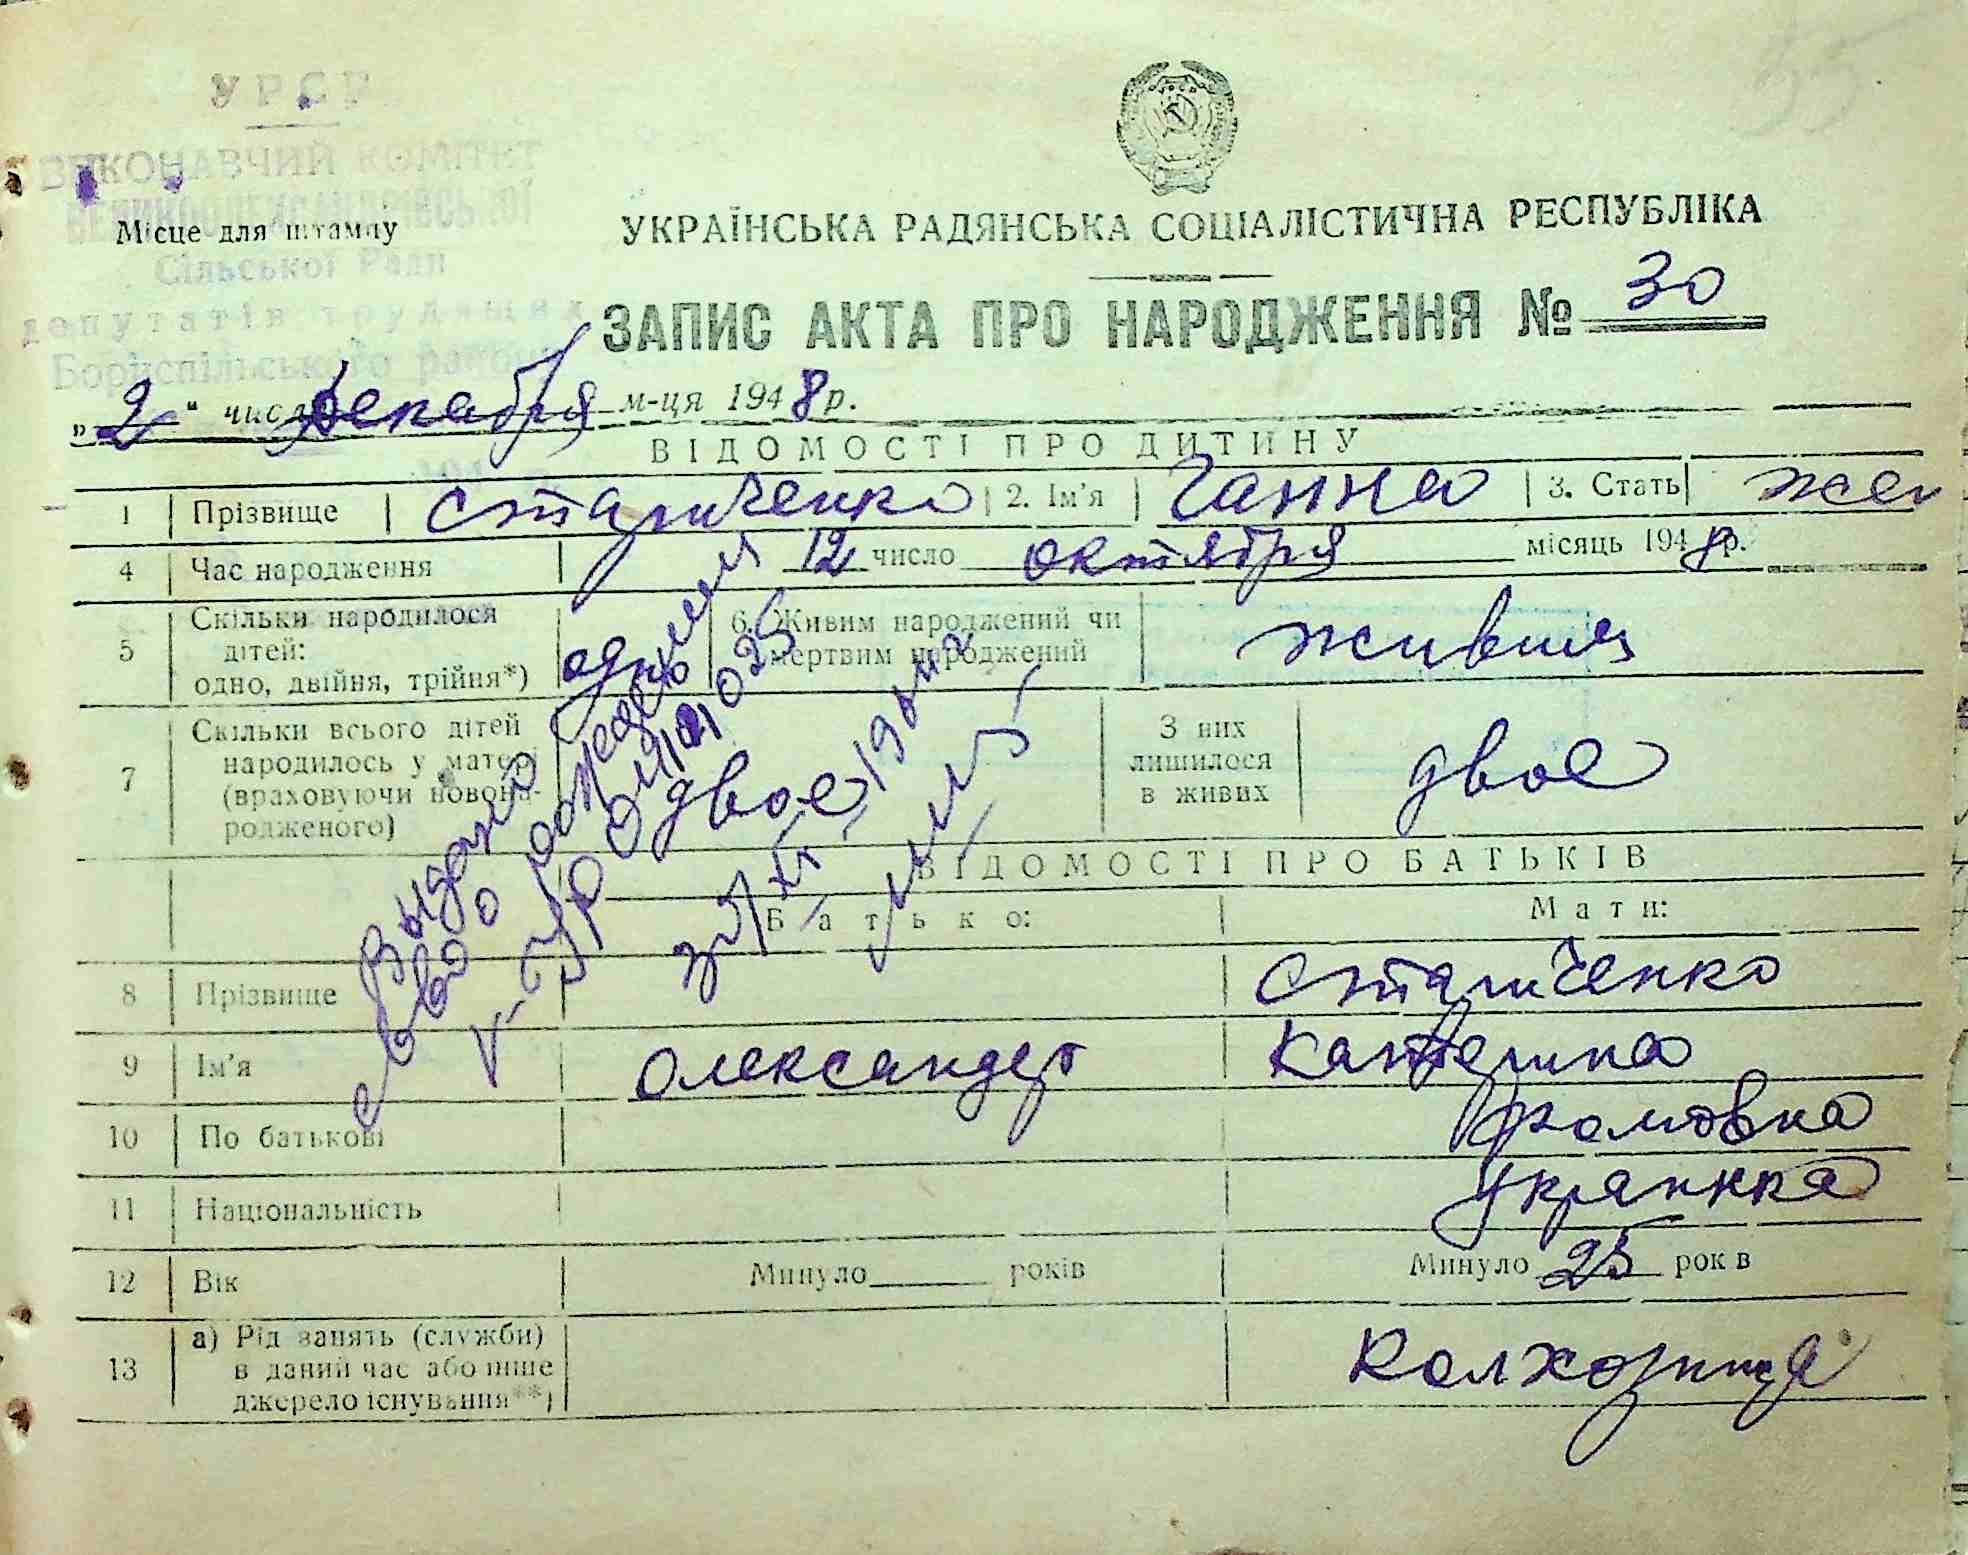 УРСР
ВИКОНАВЧИЙ КОМІТЕТ
ВЕЛИКООЛЕКСАНДРІВСЬКОЇ
Місце для штампу
Сільської Ради
депутатів трудящих
Бориспільського району
УКРАЇНСЬКА РАДЯНСЬКА СОЦІАЛІСТИЧНА РЕСПУБЛІКА
ЗАПИС АКТА ПРО НАРОДЖЕННЯ № 30
„2“ число декабря м-ця 1948 р.
ВІДОМОСТІ ПРО ДИТИНУ
1 Прізвище Стариченко 2. Ім'я Ганна 3. Стать жен
4 Час народження 12 число октября місяць 1948 р.
5 Скільки народилося дітей: одно, двійня, трійня*) одн 6. Живим народжений чи мертвим народжений живим
7 Скільки всього дітей народилось у матері (враховуючи новонародженого) двое З них лишилося в живих двое
Выдано
св о рождении
ВІДОМОСТІ ПРО БАТЬКІВ
Батько: Мати:
8 Прізвище Стариченко
9 Ім'я Олександер Катерина
10 По батькові Фомовна
11 Національність Украинка
12 Вік Минуло років Минуло 25 років
13 а) Рід занять (служби) в даний час або інше джерело існування**) Колхозница